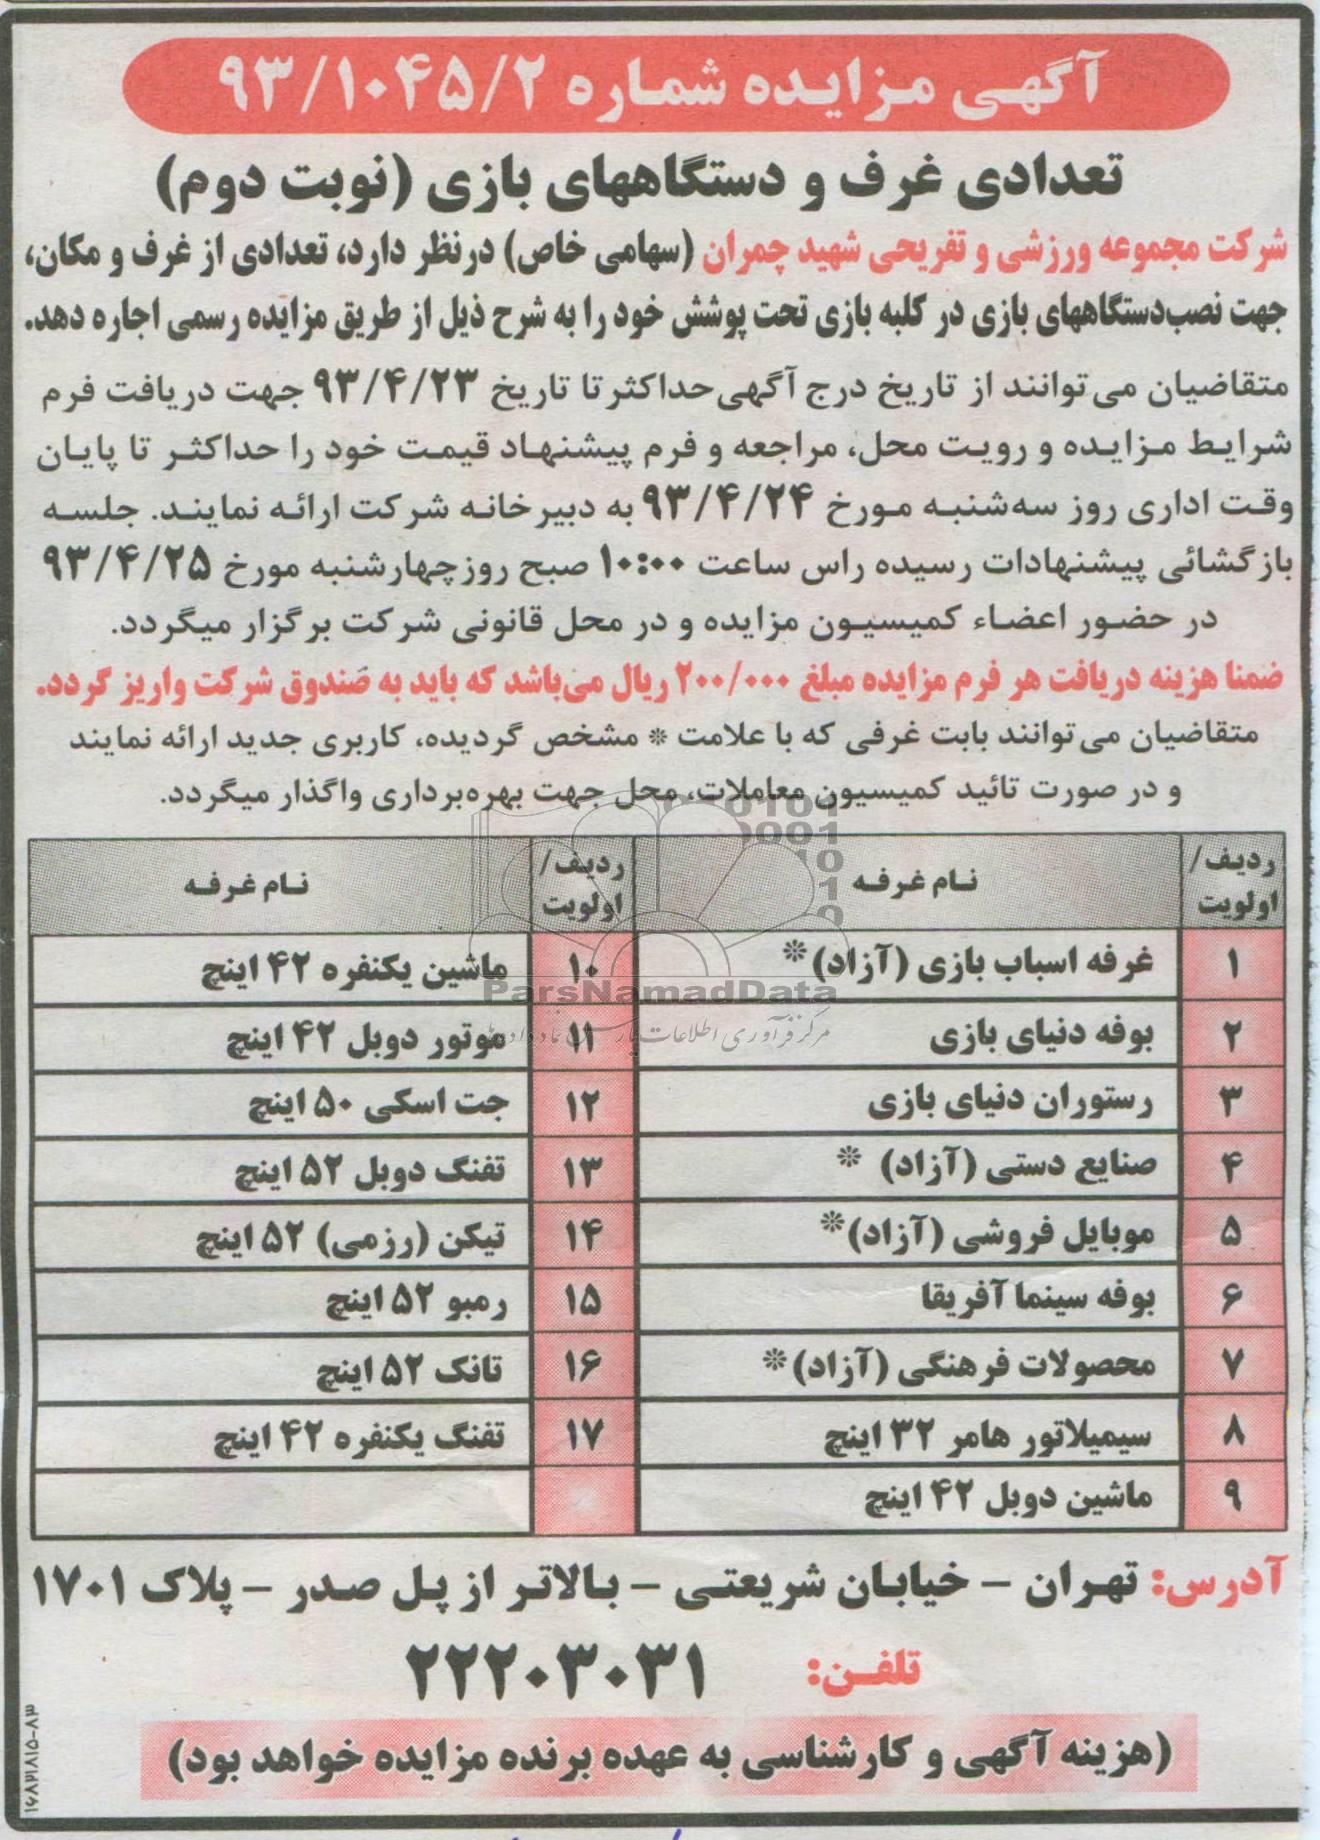 آگهی مزایده شماره ۹۳/۱۰۴۵/۲
تعدادی غرف و دستگاههای بازی (نوبت دوم)
شرکت مجموعه ورزشی و تفریحی شهید چمران (سهامی خاص) درنظر دارد، تعدادی از غرف و مکان،
جهت نصب‌دستگاههای بازی در کلبه بازی تحت پوشش خود را به شرح ذیل از طریق مزایده رسمی اجاره دهد.
متقاضیان می‌توانند از تاریخ درج آگهی حداکثر تا تاریخ ۹۳/۴/۲۳ جهت دریافت فرم
شرایط مزایده و رویت محل، مراجعه و فرم پیشنهاد قیمت خود را حداکثر تا پایان
وقت اداری روز سه‌شنبه مورخ ۹۳/۴/۲۴ به دبیرخانه شرکت ارائه نمایند. جلسه
بازگشائی پیشنهادات رسیده راس ساعت ۱۰:۰۰ صبح روز چهارشنبه مورخ ۹۳/۴/۲۵
در حضور اعضاء کمیسیون مزایده و در محل قانونی شرکت برگزار میگردد.
ضمنا هزینه دریافت هر فرم مزایده مبلغ ۲۰۰/۰۰۰ ریال می‌باشد که باید به صندوق شرکت واریز گردد.
متقاضیان می‌توانند بابت غرفی که با علامت * مشخص گردیده، کاربری جدید ارائه نمایند
و در صورت تائید کمیسیون معاملات، محل جهت بهره‌برداری واگذار میگردد.
ردیف/اولویت نام غرفه ردیف/اولویت نام غرفه
۱ غرفه اسباب بازی (آزاد)* ۱۰ ماشین یکنفره ۴۲ اینچ
۲ بوفه دنیای بازی ۱۱ موتور دوبل ۴۲ اینچ
۳ رستوران دنیای بازی ۱۲ جت اسکی ۵۰ اینچ
۴ صنایع دستی (آزاد) * ۱۳ تفنگ دوبل ۵۲ اینچ
۵ موبایل فروشی (آزاد)* ۱۴ تیکن (رزمی) ۵۲ اینچ
۶ بوفه سینما آفریقا ۱۵ رمبو ۵۲ اینچ
۷ محصولات فرهنگی (آزاد)* ۱۶ تانک ۵۲ اینچ
۸ سیمیلاتور هامر ۳۲ اینچ ۱۷ تفنگ یکنفره ۴۲ اینچ
۹ ماشین دوبل ۴۲ اینچ
ParsNamadData
مرکز فرآوری اطلاعات پارس نماد داده‌ها
آدرس: تهران - خیابان شریعتی - بالاتر از پل صدر - پلاک ۱۷۰۱
تلفن: ۲۲۲۰۳۰۳۱
(هزینه آگهی و کارشناسی به عهده برنده مزایده خواهد بود)